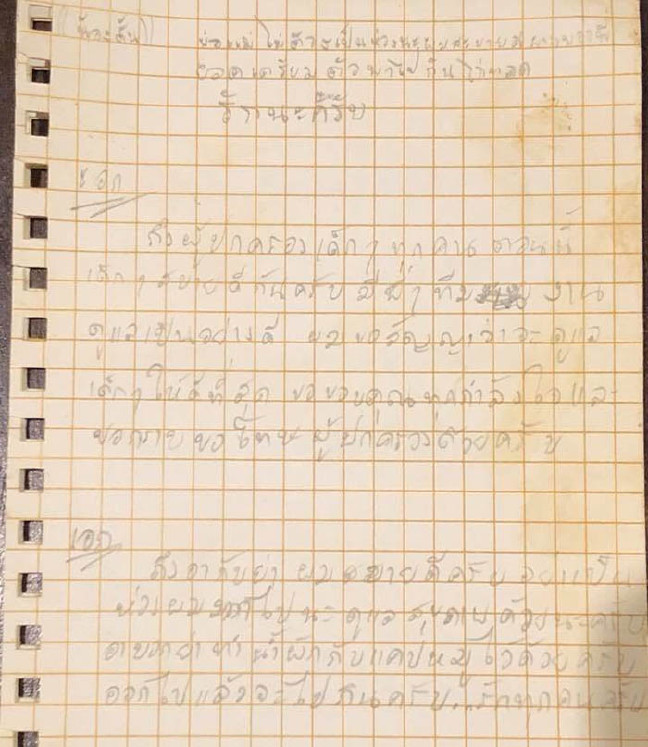 พ่อแม่ ไม่ต้องเป็นห่วงนะผมสบายดี บอกพี่
ยอดเตรียมตัวพาไปกินไก่ทอด
รักนะครับ
เอก
ถึงผู้ปกครองเด็กๆ ทุกคน ตอนนี้
เด็กๆ สบายดีกันครับ มีพี่ๆ ทีม งาน
ดูแลเป็นอย่างดี ผมขอสัญญาว่าจะดูแล
เด็กๆ ให้ดีที่สุด ขอขอบคุณทุกกำลังใจและ
ขอกราบขอโทษผู้ปกครองด้วยครับ
เอก
ถึงอากับย่า ผมสบายดีครับ อย่าเป็น
ห่วงผมมากไปนะ ดูแลสุขภาพด้วยนะครับ
อาบอกย่าทำน้ำผักกับแคปหมูไว้ด้วยครับ
ออกไปแล้วจะไปกินครับ..รักทุกคนครับ